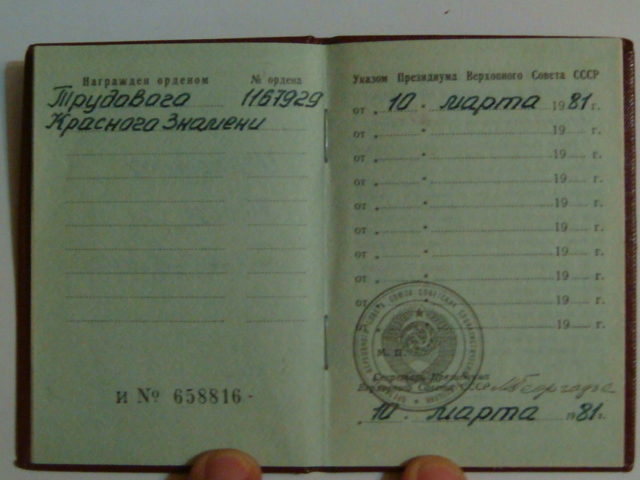 Награжден орденом № ордена
Трудового 1167929
Красного Знамени
И № 658816
Указом Президиума Верховного Совета СССР
от „ 10 " марта 1981 г.
от „ " 19 г.
от „ " 19 г.
от „ " 19 г.
от „ " 19 г.
от „ " 19 г.
от „ " 19 г.
от „ " 19 г.
от „ " 19 г.
19 г.
М. П.
Секретарь Президиума
Верховного Совета СССР
„ 10 " марта 1981 г.